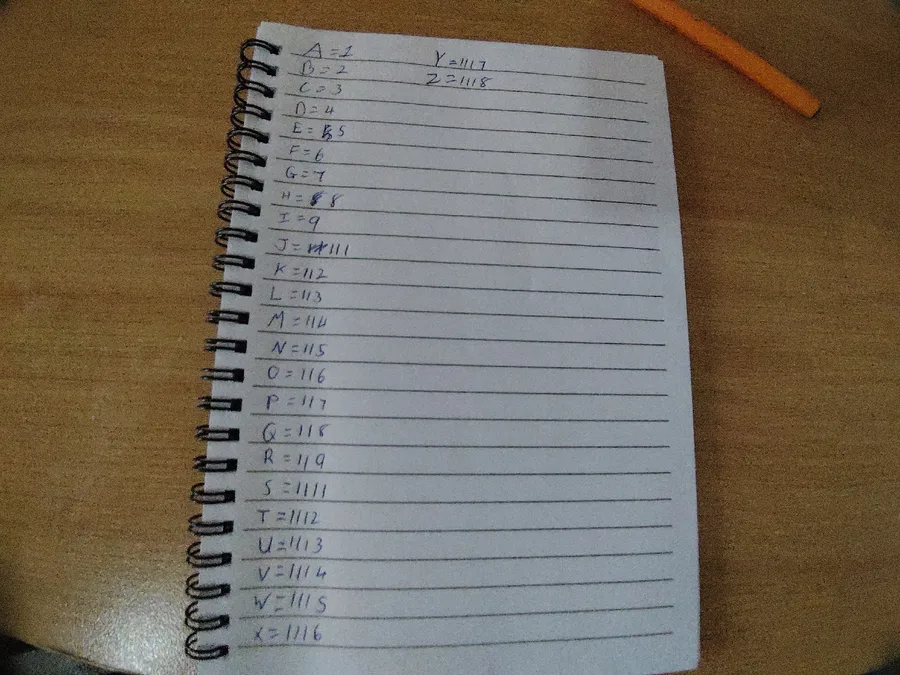 A = 1
B = 2
C = 3
D = 4
E = 5
F = 6
G = 7
H = 8
I = 9
J = 111
K = 112
L = 113
M = 114
N = 115
O = 116
P = 117
Q = 118
R = 119
S = 1111
T = 1112
U = 1113
V = 1114
W = 1115
X = 1116
Y = 1117
Z = 1118